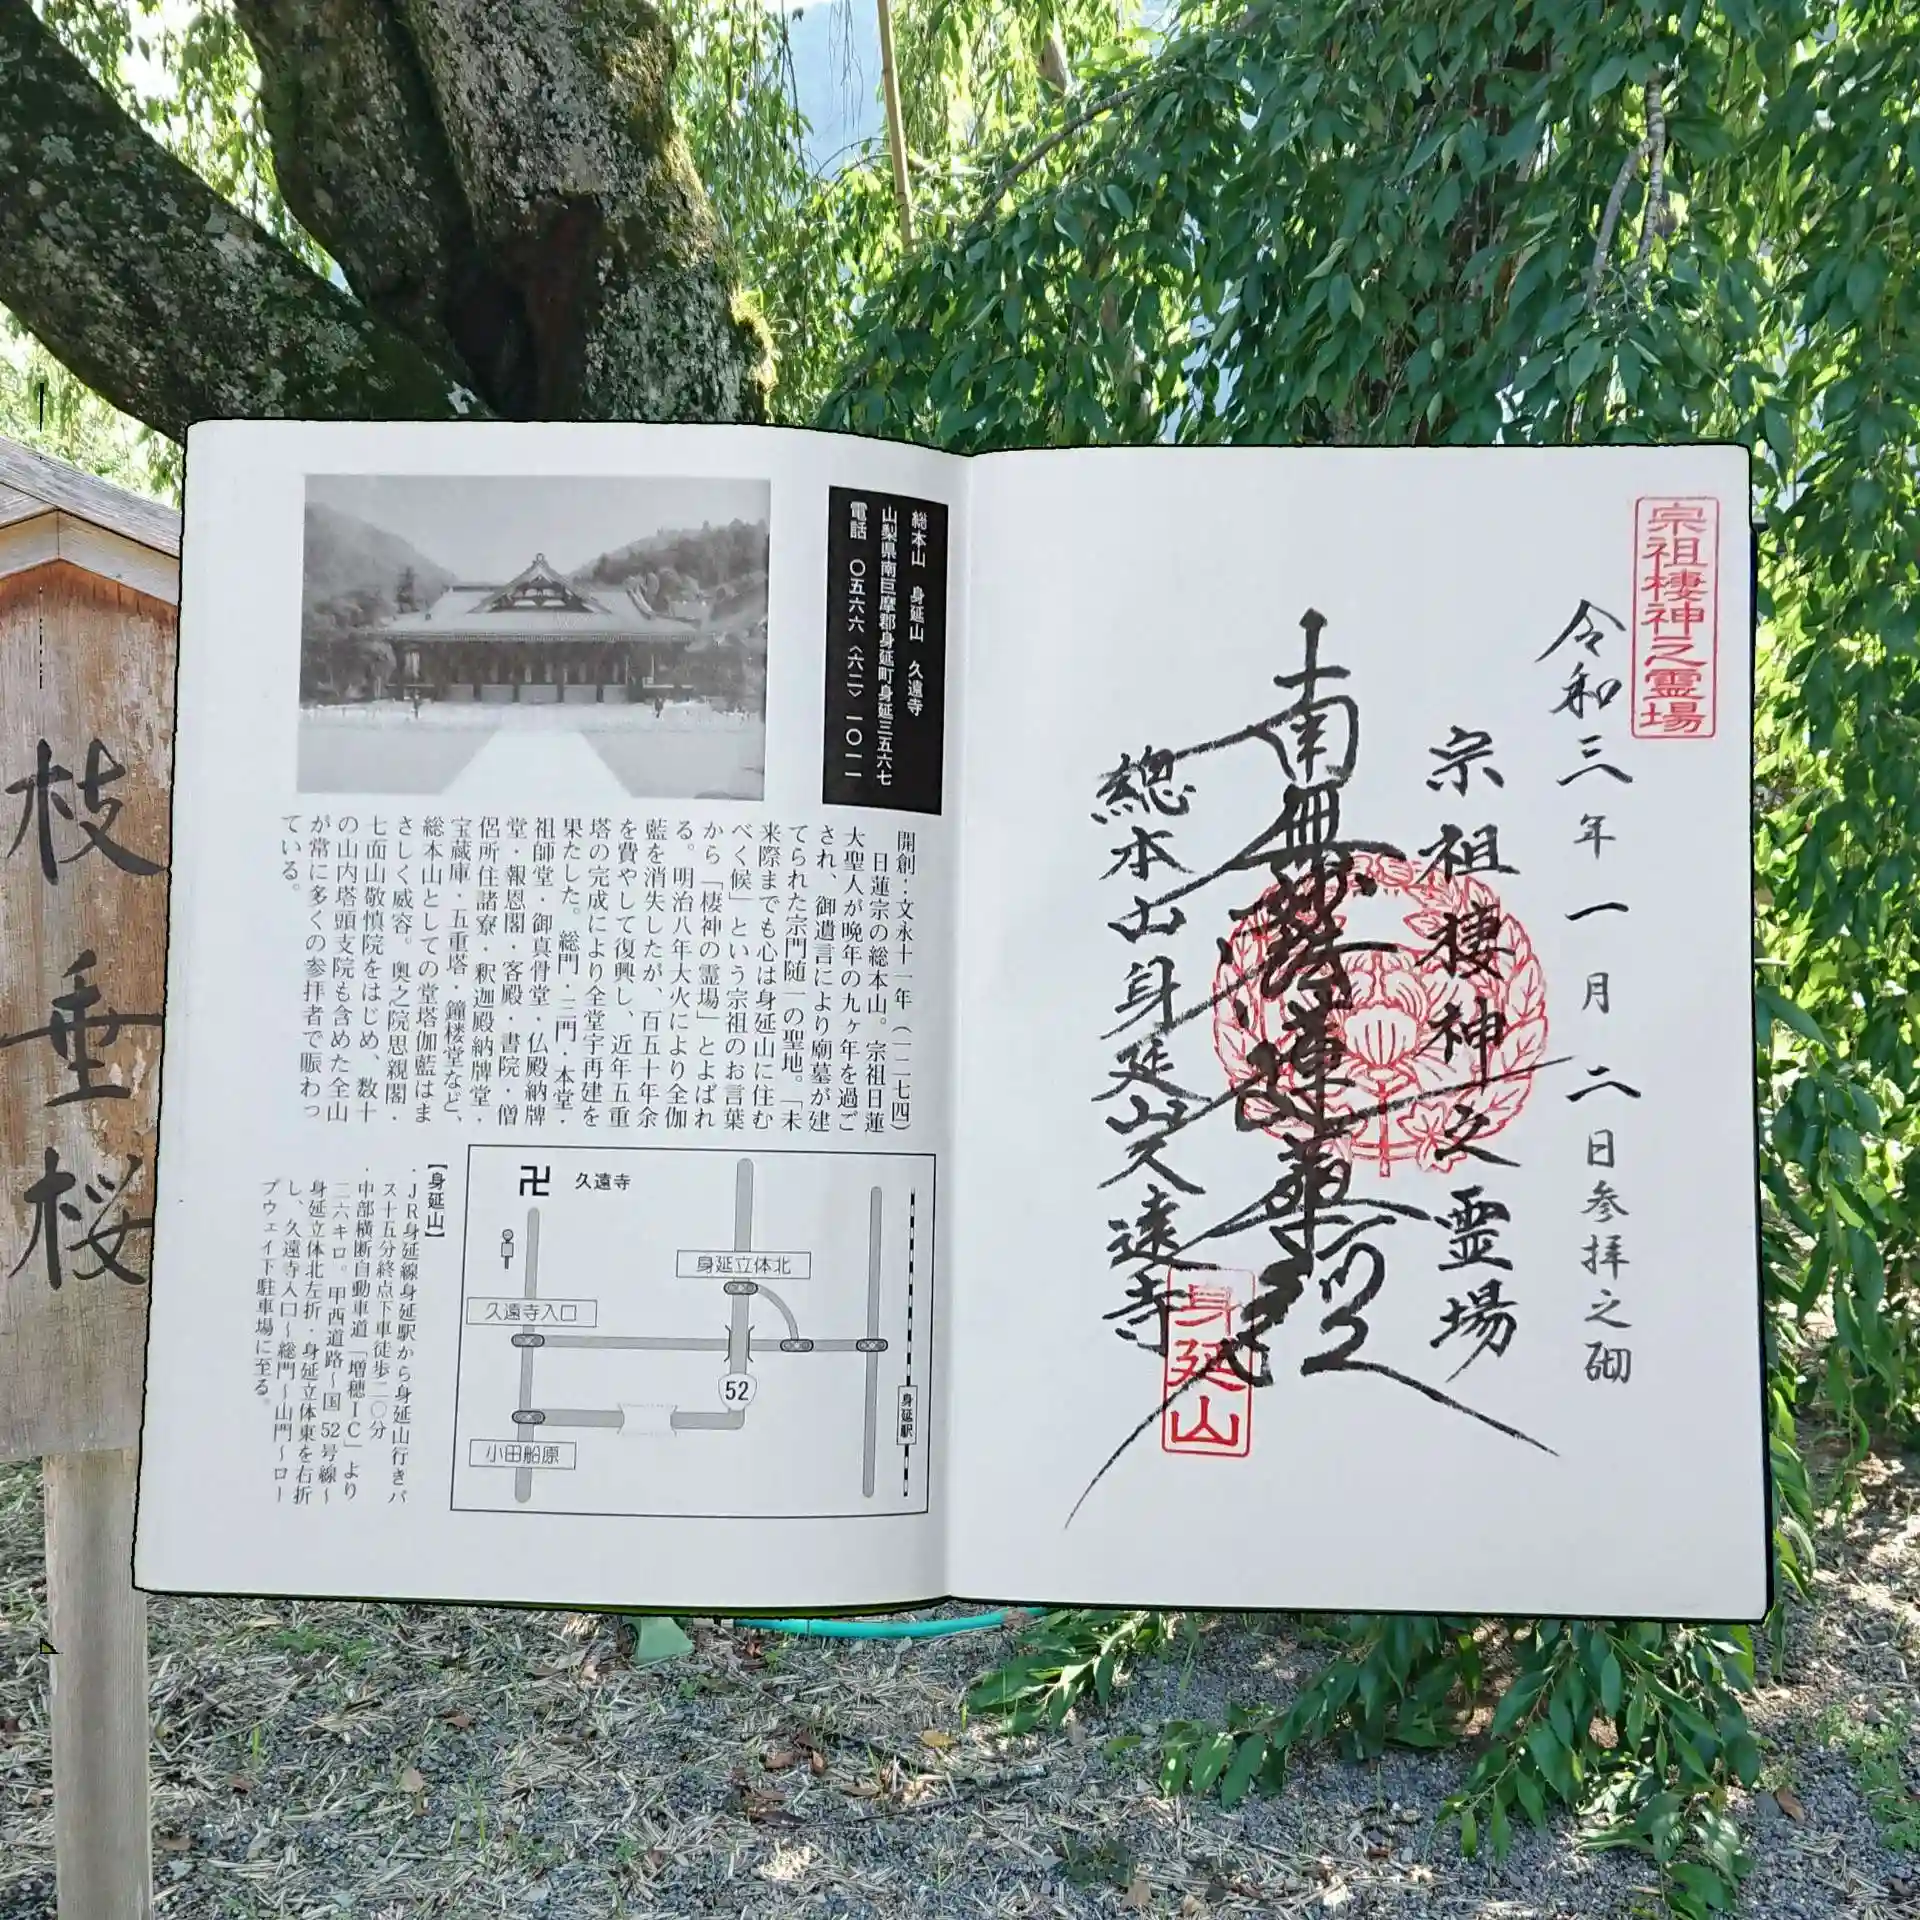 宗祖棲神之霊場
令和三年一月二日参拝之砌
宗祖棲神之霊場
南無妙法蓮華経
總本山身延山久遠寺
身延山
総本山 身延山 久遠寺
山梨県南巨摩郡身延町身延三五六七
電話 〇五六六〈六二〉一〇一一
開創：文永十一年（一二七四）
日蓮宗の総本山。宗祖日蓮
大聖人が晩年の九ヶ年を過ご
され、御遺言により廟墓が建
てられた宗門随一の聖地。「未
来際までも心は身延山に住む
べく候」という宗祖のお言葉
から「棲神の霊場」とよばれ
る。明治八年大火により全伽
藍を消失したが、百五十年余
を費やして復興し、近年五重
塔の完成により全堂宇再建を
果たした。総門・三門・本堂・
祖師堂・御真骨堂・仏殿納牌
堂・報恩閣・客殿・書院・僧
侶所住諸寮・釈迦殿納牌堂・
宝蔵庫・五重塔・鐘楼堂など、
総本山としての堂塔伽藍はま
さしく威容。奥之院思親閣・
七面山敬慎院をはじめ、数十
の山内塔頭支院も含めた全山
が常に多くの参拝者で賑わっ
ている。
卍 久遠寺
身延立体北
久遠寺入口
52
身延駅
小田船原
【身延山】
・ＪＲ身延線身延駅から身延山行きバ
ス十五分終点下車徒歩二〇分
・中部横断自動車道「増穂ＩＣ」より
二六キロ。甲西道路〜国52号線〜
身延立体北左折・身延立体東を右折
し、久遠寺入口〜総門〜山門〜ロー
プウェイ下駐車場に至る。
枝垂桜